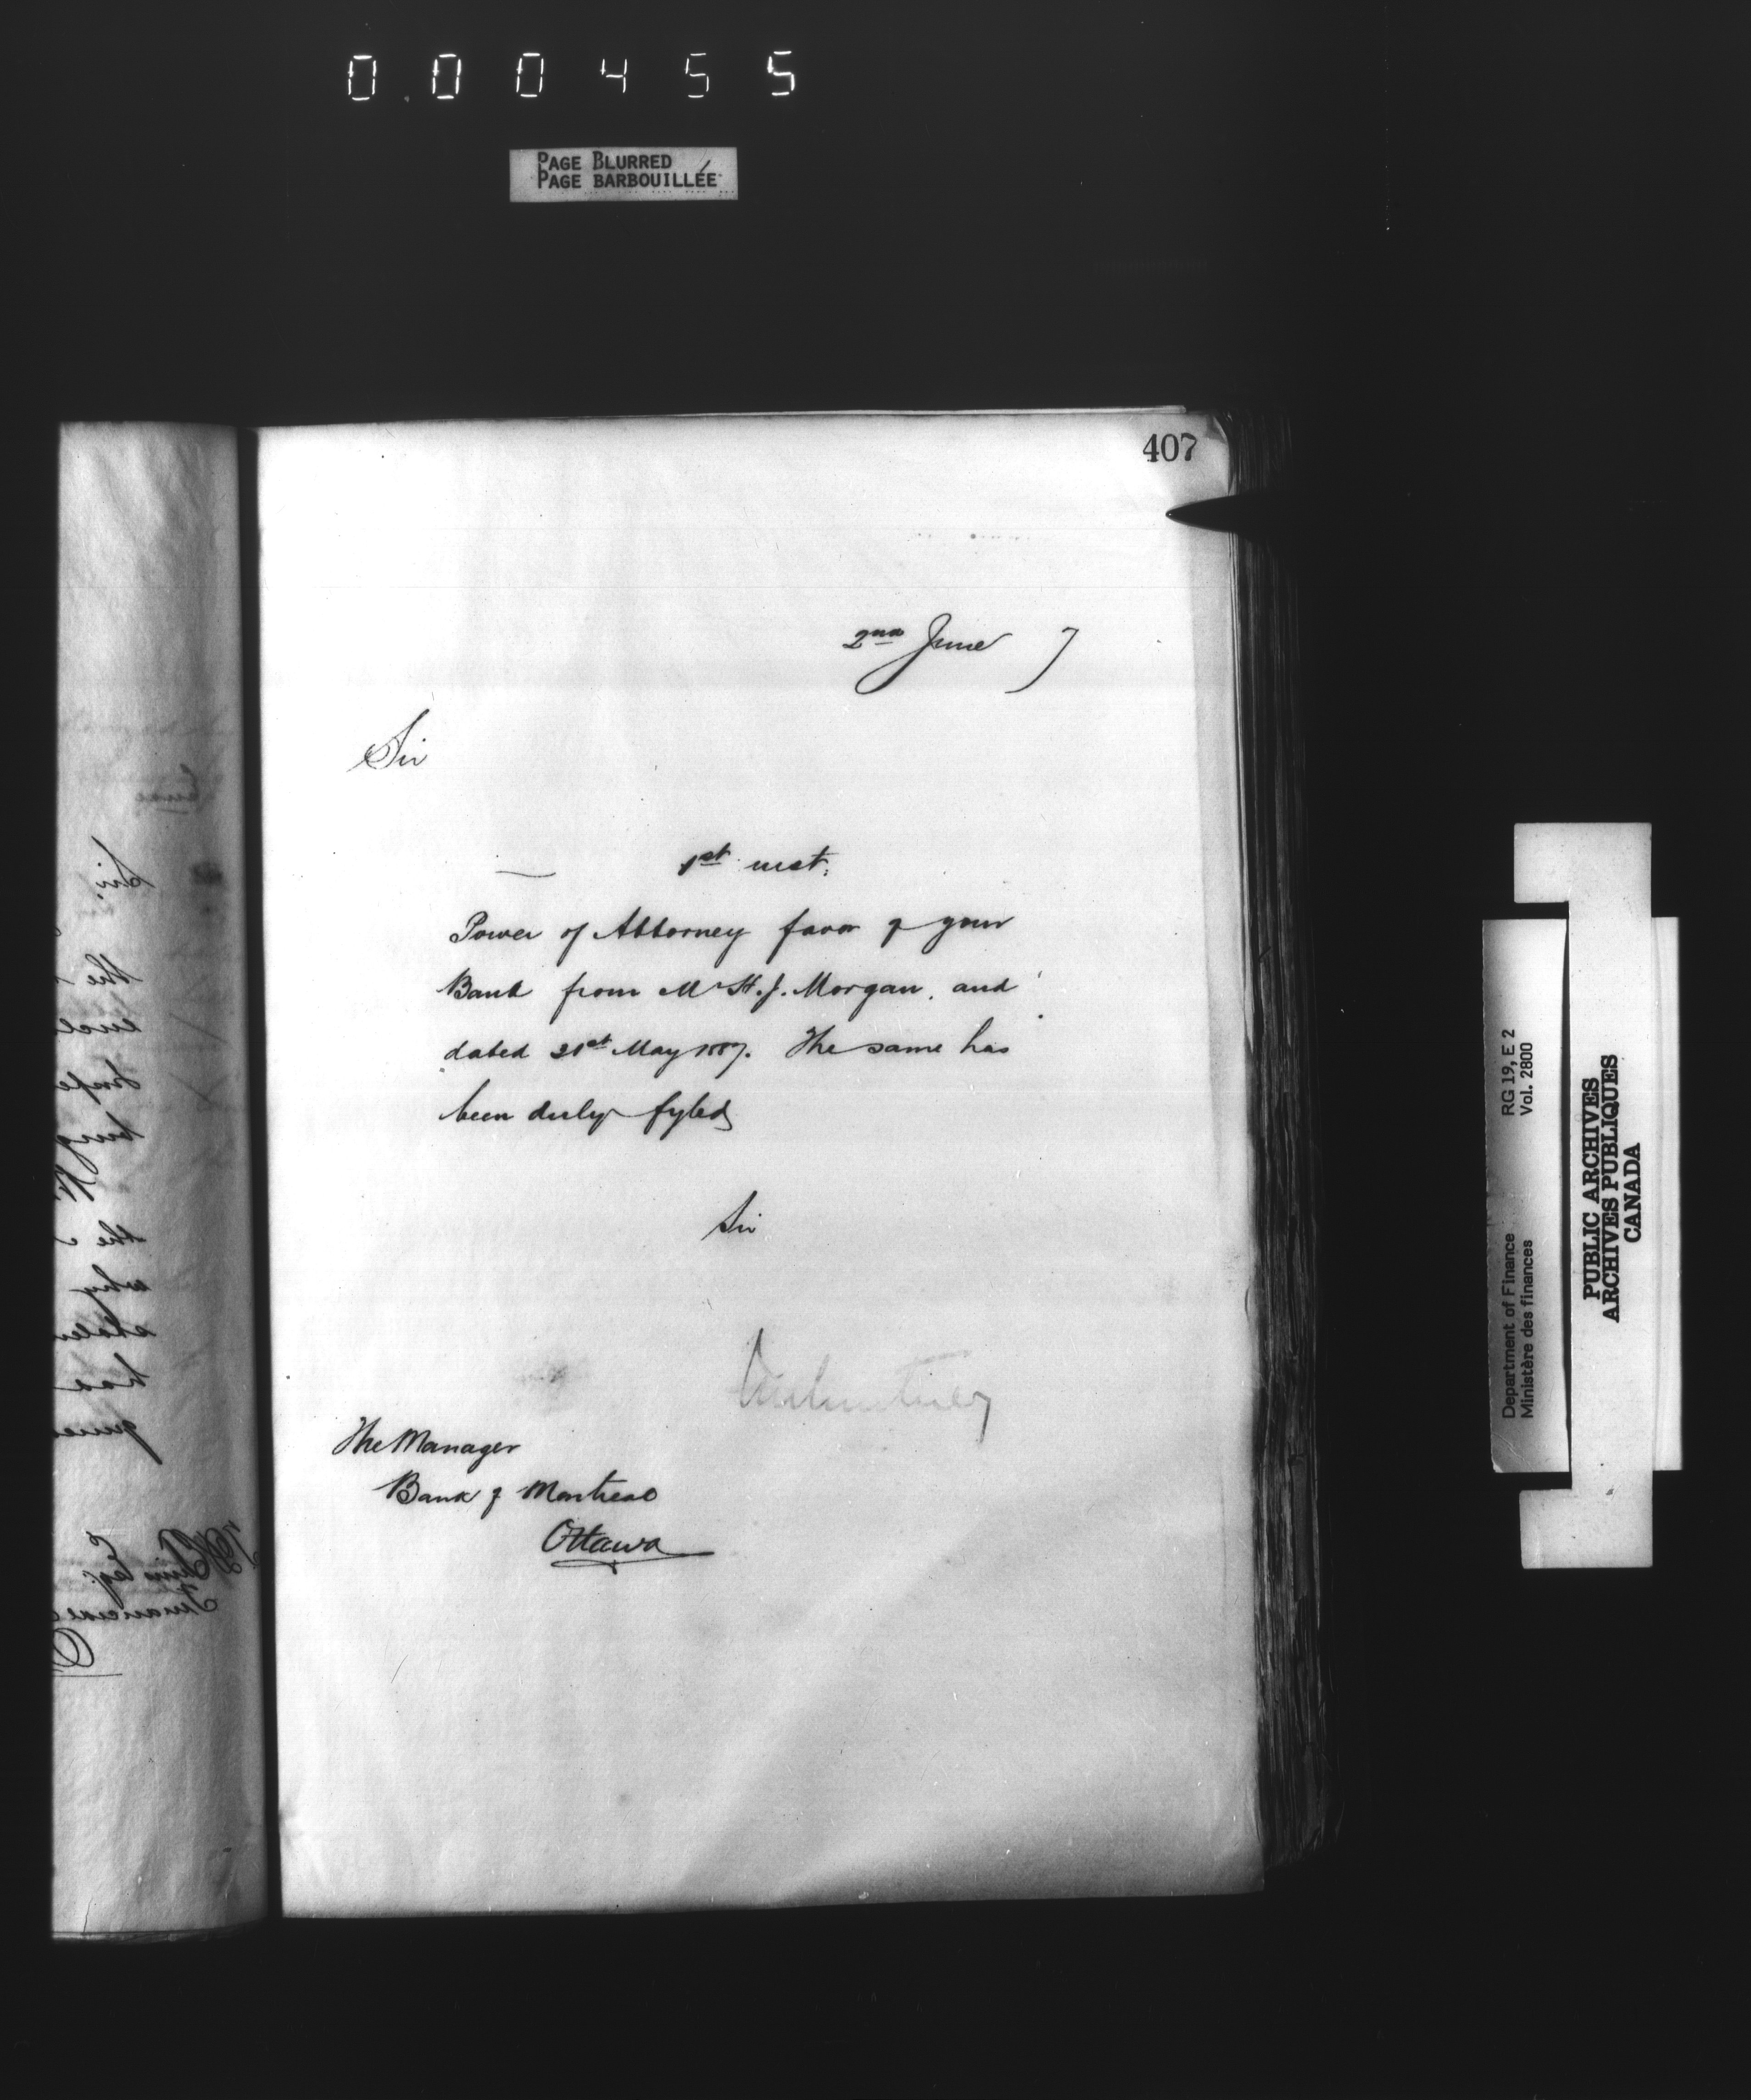 000455
PAGE BLURRED
PAGE BARBOUILLÉE
407
2nd June 7
Sir
1st inst.
Power of Attorney favor of your
Bank from Mr H. J. Morgan, and
dated 21st May 1887. The same has
been duly fyled
Sir
The Manager
Bank of Montreal
Ottawa
Sir,
the
encl
the
why
had
Department of Finance RG 19, E 2
Ministère des finances Vol. 2800
PUBLIC ARCHIVES
ARCHIVES PUBLIQUES
CANADA